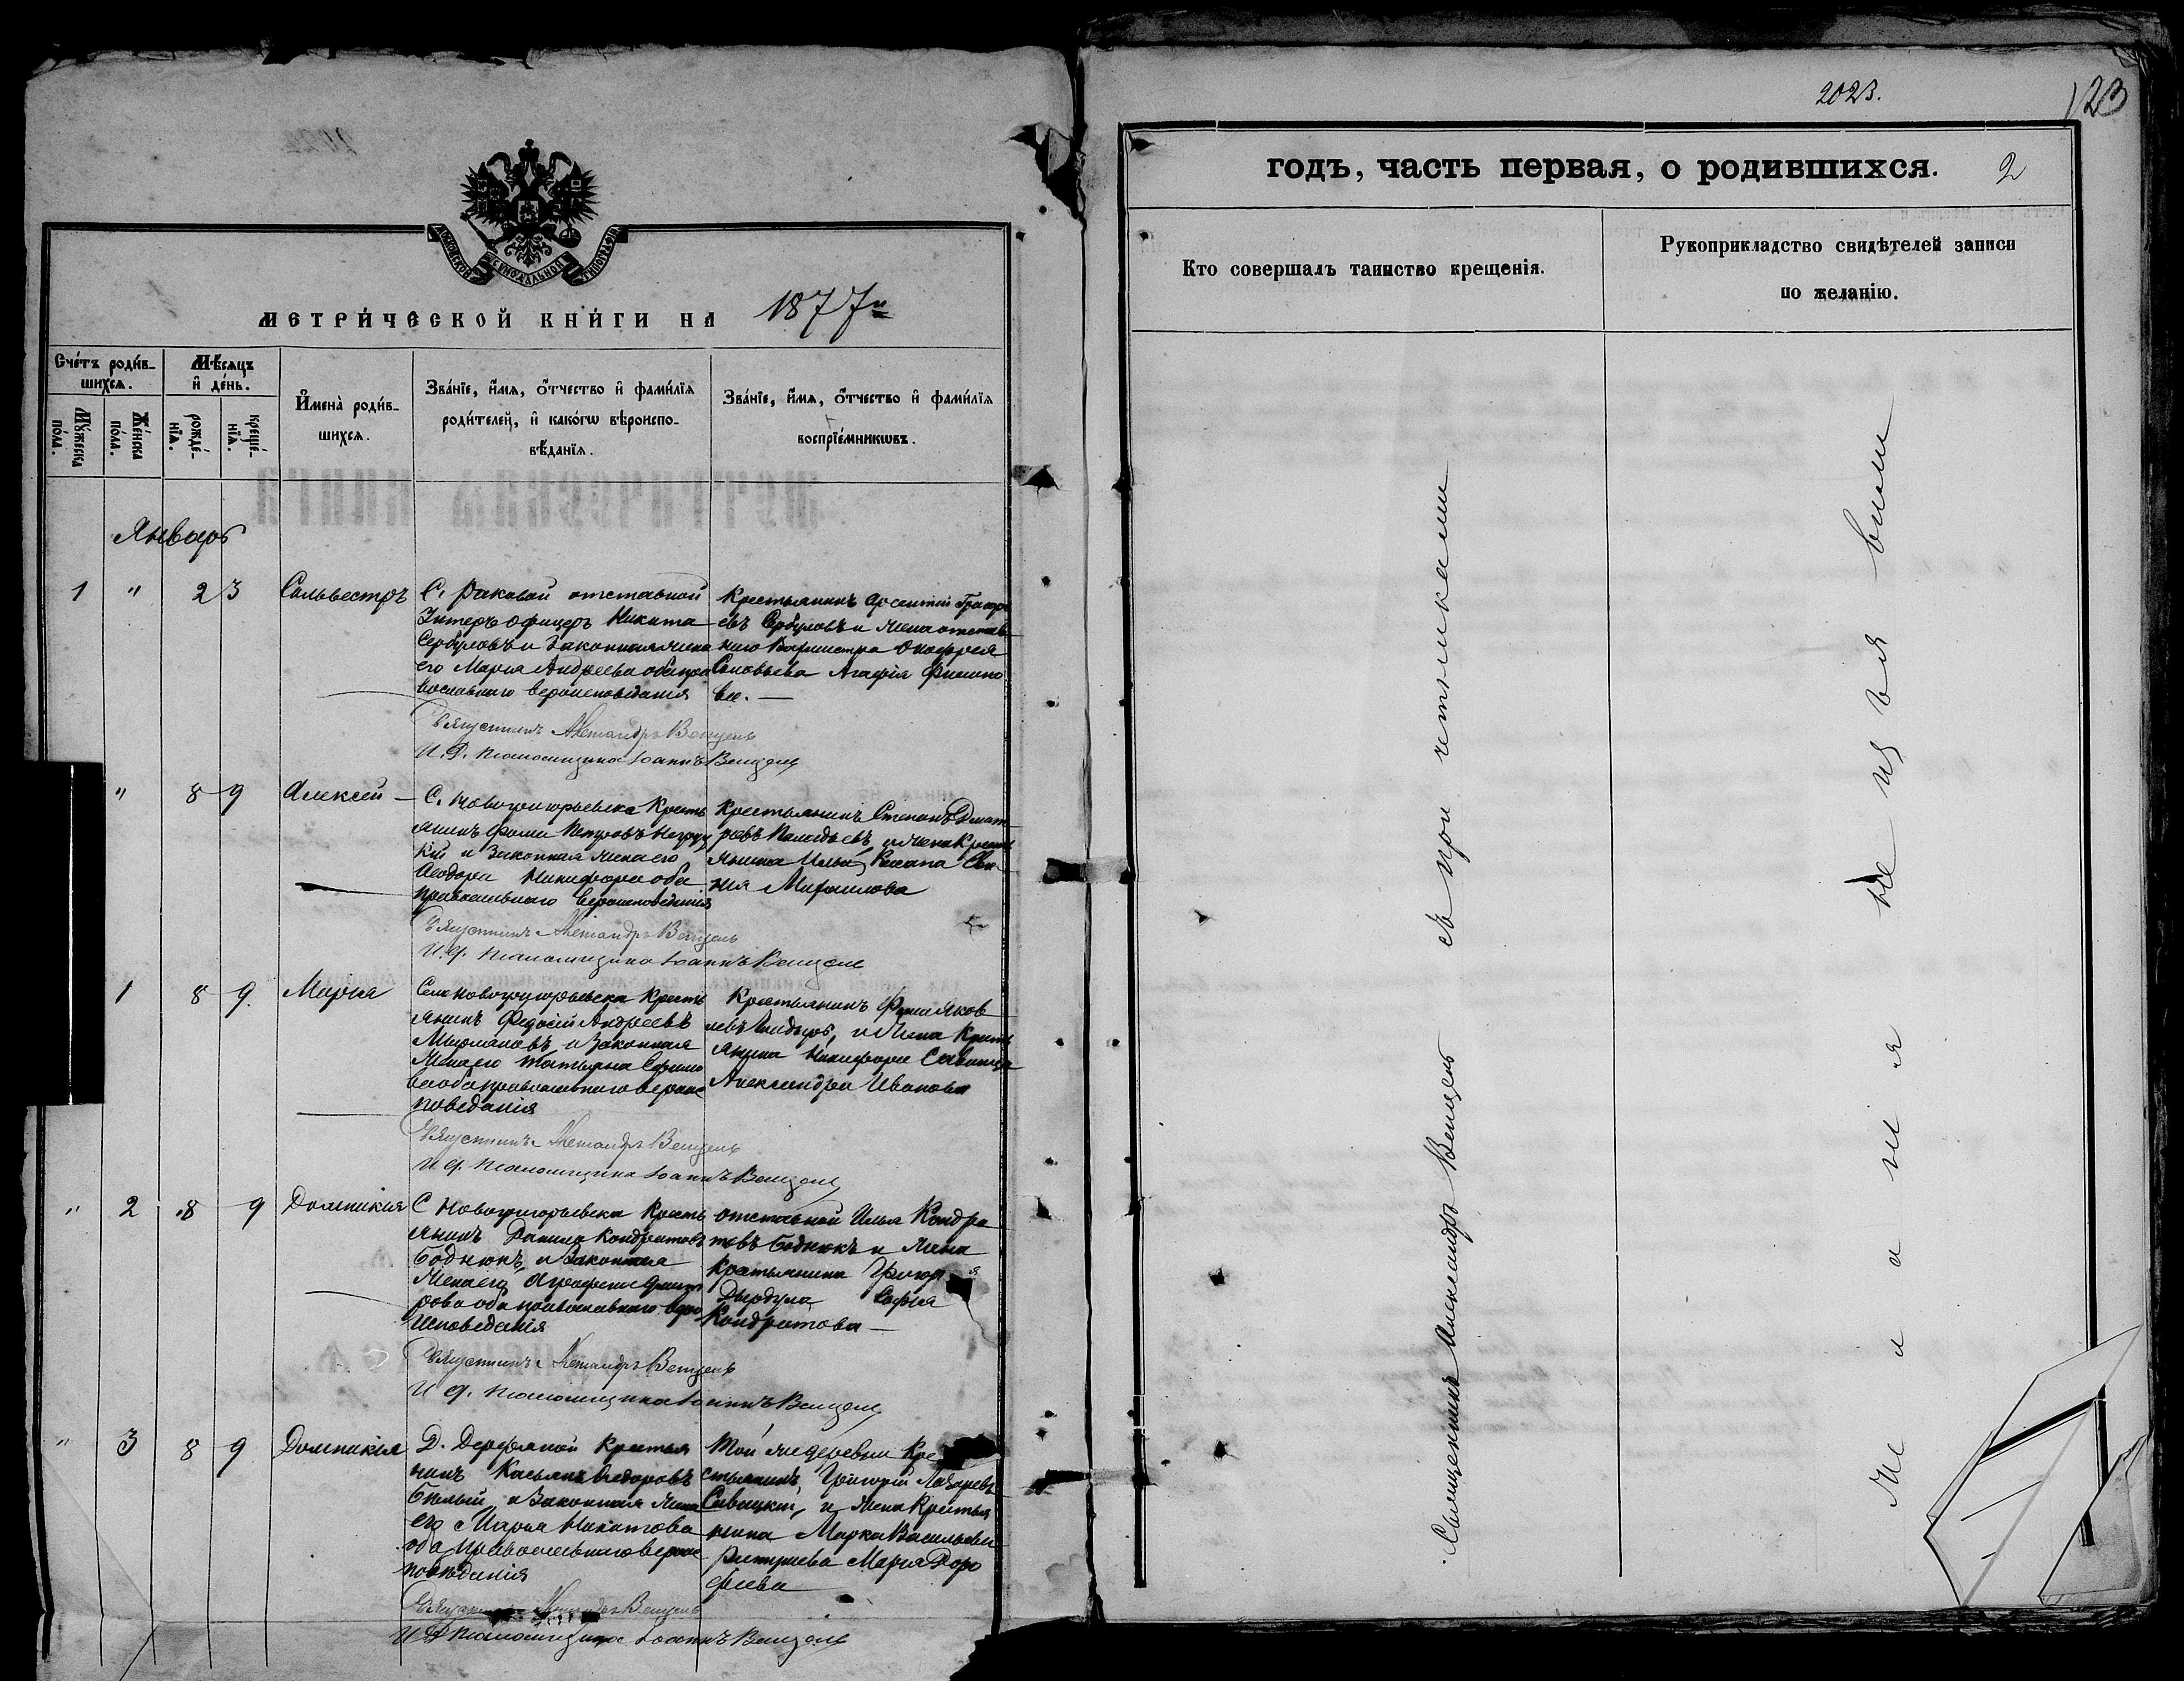 МОСКОВСКОЙ СѴНОДАЛЬНОЙ ТИПОГРАФІИ
МЕТРИ́ЧЕСКОЙ КНИ́ГИ НА 1877й
Сче́тъ роди́в-
шихсѧ.
Мѣ́сѧцъ
и҆ де́нь.
И҆мена̀ роди́в-
шихсѧ.
Зва́нїе, и҆́мѧ, ѻ҆́тчество и҆ фами́лїѧ
роди́телей, и҆ како́гѡ вѣроиспо-
вѣ́данїѧ.
Зва́нїе, и҆́мѧ, ѻ҆́тчество и҆ фами́лїѧ
воспрїе́мникѡвъ.
Мꙋ́жеска
по́ла.
Же́нска
по́ла.
рожде́-
нїѧ.
креще́-
нїѧ.
Январь
1 " 2 3 Сильвестръ
С. Раковой отставной
Унтеръ офицеръ Никита
Сербуловъ и законная жена
его Марія Андреева оба пра
вославнаго вероисповеданія
Крестьянинъ Арсентій Григорь
евъ Сербуловъ и жена отстав
наго
Соловьева Агафія Филипо
ва. —
Священникъ Александръ Венцель
И. Д. Псаломщика Іоаннъ Венцель
" 8 9 Алексей —
С. Новогригорьевка Кресть
янинъ Фома Петровъ
и законная жена его
Никифора оба
православнаго вероисповеданія
Крестьянинъ Степанъ Дмит
ріевъ и жена Кресть
янина Ильи
Михаилова
Священникъ Александръ Венцель
И. Д. Псаломщика Іоаннъ Венцель
1 8 9. Марія
Села Новогригорьевка Кресть
янинъ Федосій Андреевъ
и законная
жена его Татьяна
ва оба православнаго вероис
поведанія
Крестьянинъ Фома Яков
левъ и жена Кресть
янина Никифора
Александра Иванова
Священникъ Александръ Венцель
И. Д. Псаломщика Іоаннъ Венцель
" 2 8 9 Домникия
С Новогригорьевка Кресть
янинъ Данила Кондратовъ
Боднюкъ и законная
жена его Аграфена
рова оба православнаго веро
исповеданія
отставной Илья Кондра
товъ Боднюкъ и жена
Крестьянина Григор я
София
Кондратова —
Священникъ Александръ Венцель
И Д. Псаломщика Іоаннъ Венцель
" 3 8 9 Домникія
Д. Крестья
нинъ Касьянъ Федоровъ
Билый и законная жена
его Марія Никитова
оба православнаго вероис
поведанія
Той же деревни Кре
стьянинъ Григорій Лазаревъ
Савицкій, и жена Крестья
нина Марка Васильева
Марія Доро
феева
Священникъ Александръ Венцель
И Д Псаломщика Іоаннъ Венцель
2023.
123
годъ, часть первая, о родившихся. 2
Кто совершалъ таинство крещенія.
Рукоприкладство свидѣтелей записи
по желанію.
Священникъ Александръ Венцель съ причетниками
Желанія не изъявили